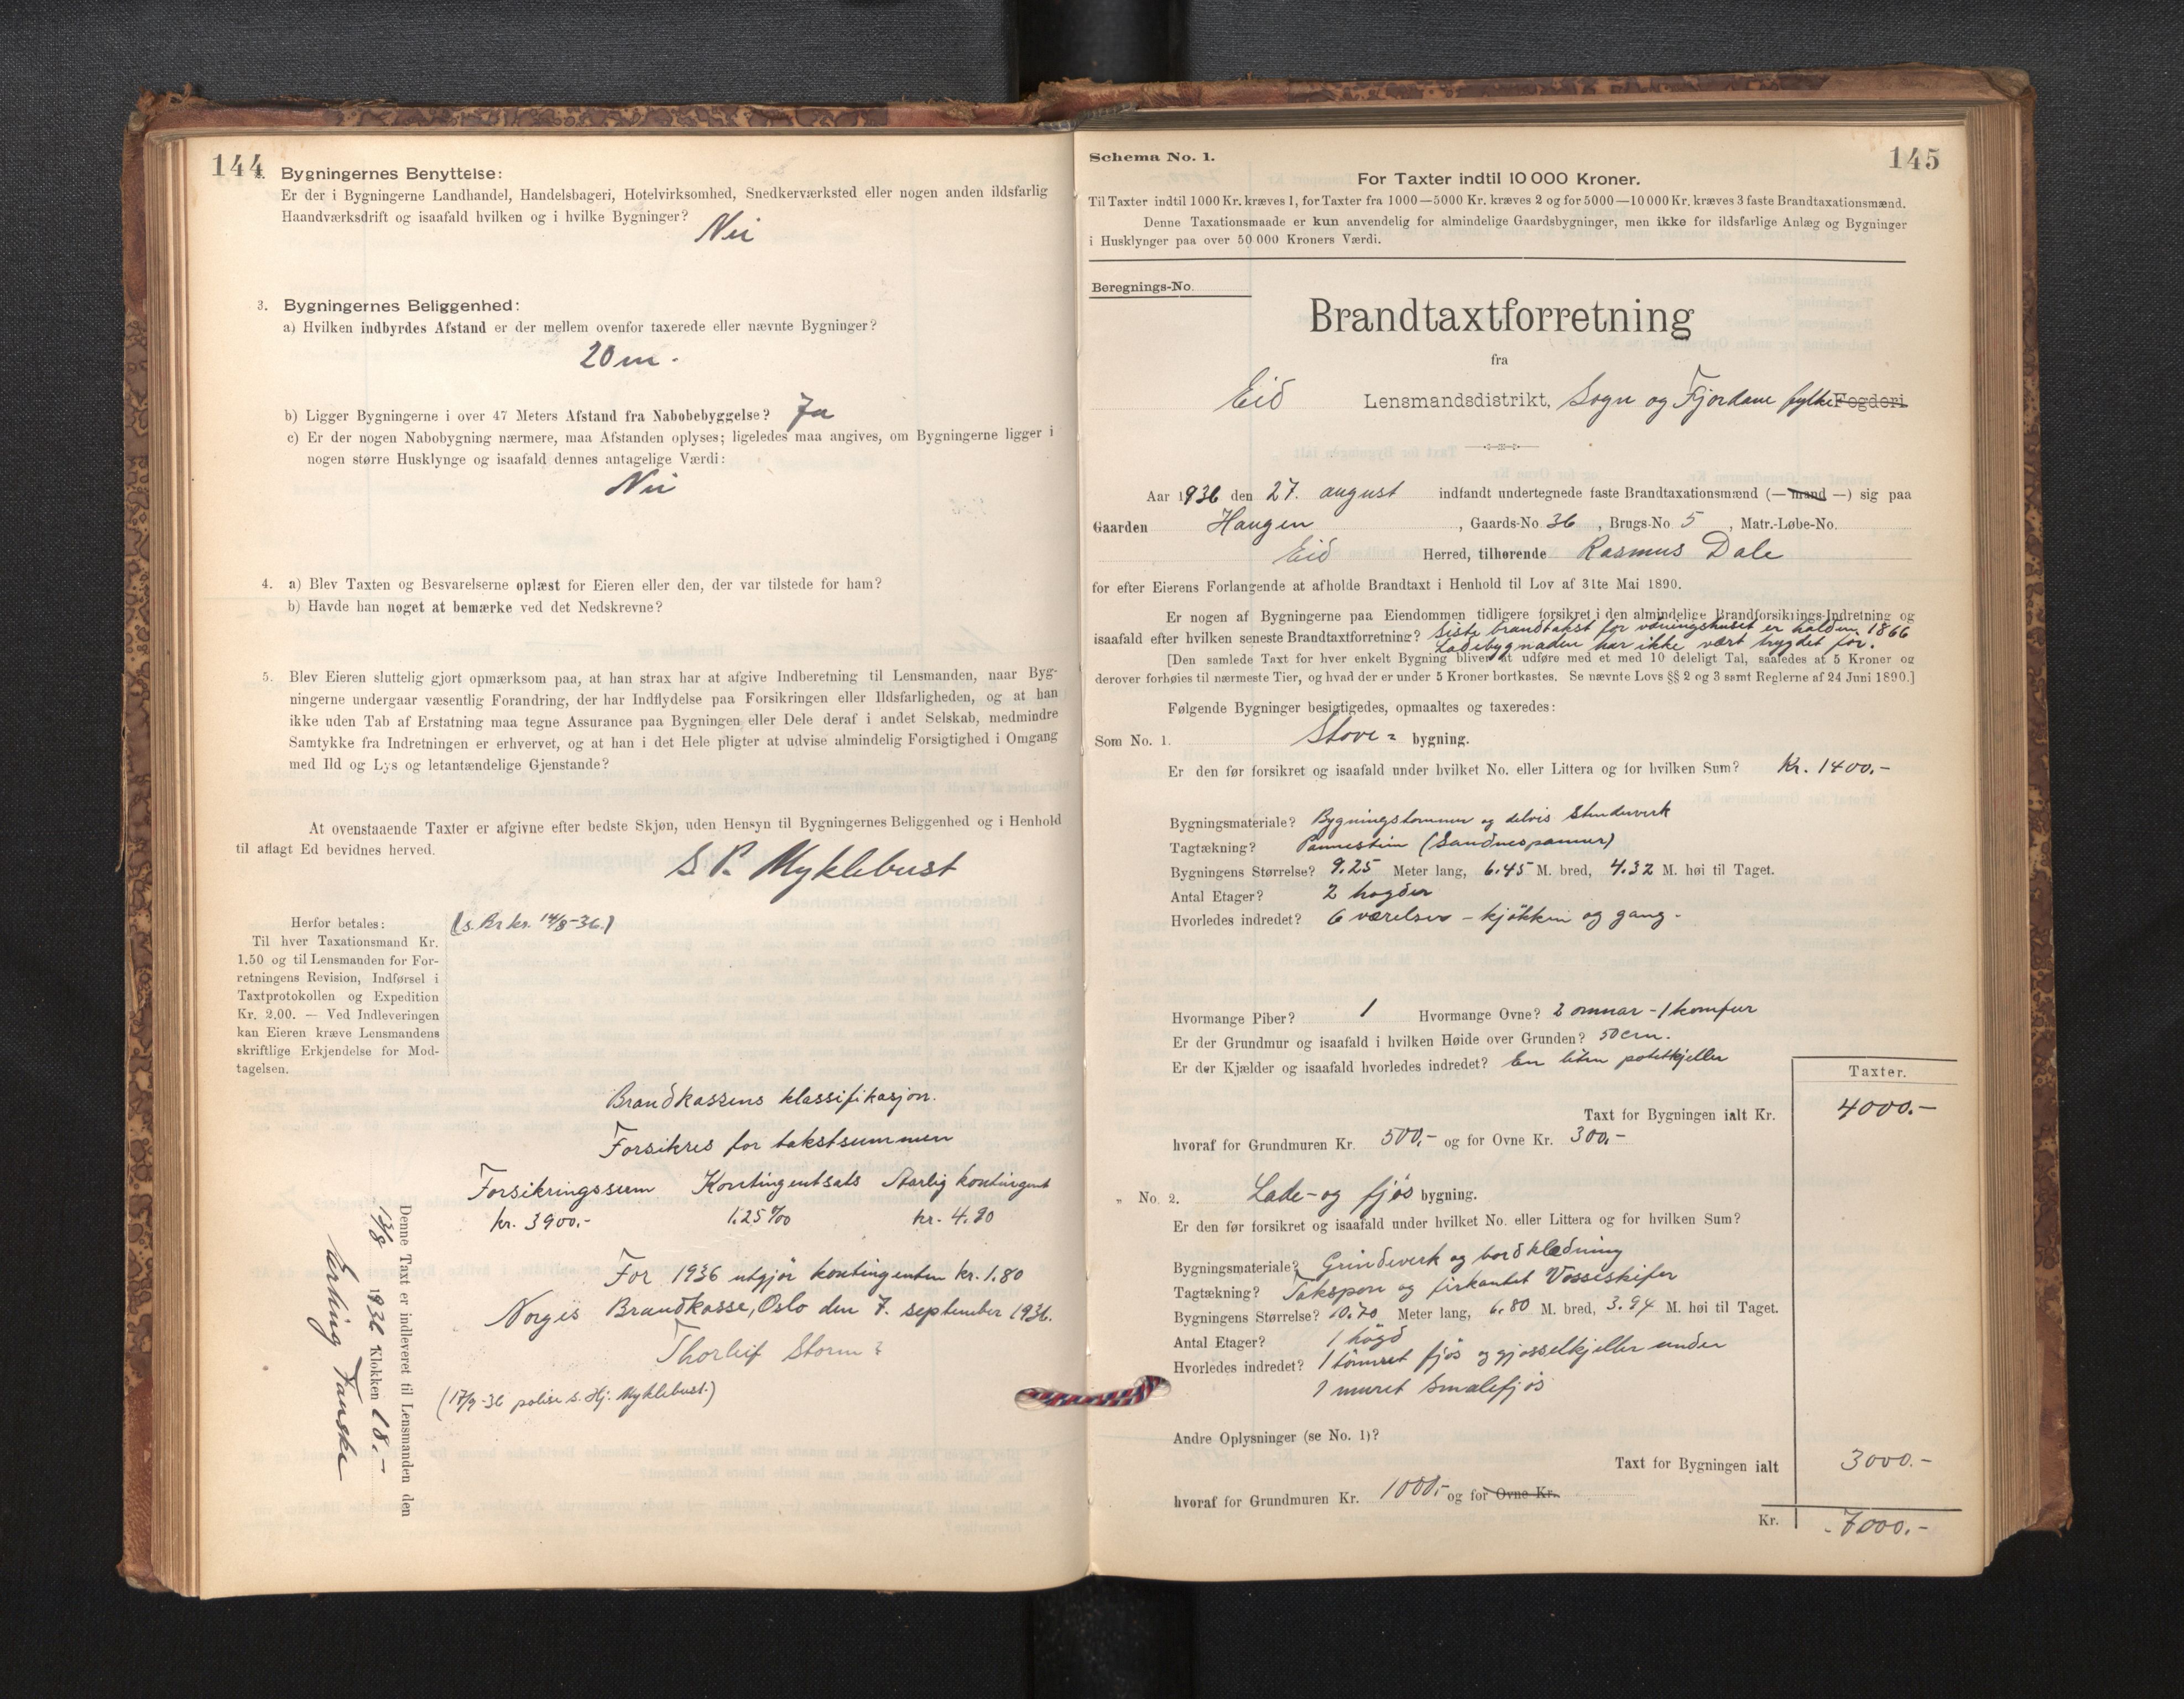 144
2. Bygningernes Benyttelse:
Er der i Bygningerne Landhandel, Handelsbageri, Hotelvirksomhed, Snedkerværksted eller nogen anden ildsfarlig
Haandværksdrift og isaafald hvilken og i hvilke Bygninger?
Nei
3. Bygningernes Beliggenhed:
a) Hvilken indbyrdes Afstand er der mellem ovenfor taxerede eller nævnte Bygninger?
20 m.
b) Ligger Bygningerne i over 47 Meters Afstand fra Nabobebyggelse? Ja
c) Er der nogen Nabobygning nærmere, maa Afstanden oplyses; ligeledes maa angives, om Bygningerne ligger i
nogen større Husklynge og isaafald dennes antagelige Værdi:
Nei
4. a) Blev Taxten og Besvarelserne oplæst for Eieren eller den, der var tilstede for ham?
b) Havde han noget at bemærke ved det Nedskrevne?
5. Blev Eieren sluttelig gjort opmærksom paa, at han strax har at afgive Indberetning til Lensmanden, naar Byg-
ningerne undergaar væsentlig Forandring, der har Indflydelse paa Forsikringen eller Ildsfarligheden, og at han
ikke uden Tab af Erstatning maa tegne Assurance paa Bygningen eller Dele deraf i andet Selskab, medmindre
Samtykke fra Indretningen er erhvervet, og at han i det Hele pligter at udvise almindelig Forsigtighed i Omgang
med Ild og Lys og letantændelige Gjenstande?
At ovenstaaende Taxter er afgivne efter bedste Skjøn, uden Hensyn til Bygningernes Beliggenhed og i Henhold
til aflagt Ed bevidnes herved.
S. P. Myklebust
(s. Br. kr. 14/8-36.)
Herfor betales:
Til hver Taxationsmand Kr.
1.50 og til Lensmanden for For-
retningens Revision, Indførsel i
Taxtprotokollen og Expedition
Kr. 2.00. — Ved Indleveringen
kan Eieren kræve Lensmandens
skriftlige Erkjendelse for Mod-
tagelsen.
Brandkassens klassifikasjon.
Forsikres for takstsummen
Forsikringssum Kontingentsats Aarlig kontingent
kr. 3900.- 1.25 ‰ kr. 4.90
For 1936 utgjør kontingenten kr. 1.80
Norges Brandkasse, Oslo den 7. september 1936.
Thorleif Storm
(17/9-36 polise s. Hj. Myklebust.)
Denne Taxt er indleveret til Lensmanden den
13/8 1936 Klokken 18.-
Erling
145
Schema No. 1.
For Taxter indtil 10 000 Kroner.
Til Taxter indtil 1000 Kr. kræves 1, for Taxter fra 1000—5000 Kr. kræves 2 og for 5000—10 000 Kr. kræves 3 faste Brandtaxationsmænd.
Denne Taxationsmaade er kun anvendelig for almindelige Gaardsbygninger, men ikke for ildsfarlige Anlæg og Bygninger
i Husklynger paa over 50 000 Kroners Værdi.
Beregnings-No.
Brandtaxtforretning
fra
Eid Lensmandsdistrikt, Sogn og Fjordane fylke Fogderi
Aar 1936 den 27. august indfandt undertegnede faste Brandtaxationsmænd (— mand —) sig paa
Gaarden Haugen, Gaards-No 36, Brugs-No 5, Matr.-Løbe-No.
Eid Herred, tilhørende Rasmus Dale
for efter Eierens Forlangende at afholde Brandtaxt i Henhold til Lov af 31te Mai 1890.
Er nogen af Bygningerne paa Eiendommen tidligere forsikret i den almindelige Brandforsikrings-Indretning og
isaafald efter hvilken seneste Brandtaxtforretning? Siste brandtakst for våningshuset er halden 1866
Ladebygnaden har ikke vært trygdet før.
[Den samlede Taxt for hver enkelt Bygning bliver at udføre med et med 10 deleligt Tal, saaledes at 5 Kroner og
derover forhøies til nærmeste Tier, og hvad der er under 5 Kroner bortkastes. Se nævnte Lovs §§ 2 og 3 samt Reglerne af 24 Juni 1890.]
Følgende Bygninger besigtigedes, opmaaltes og taxeredes:
Som No. 1. Stove- bygning.
Er den før forsikret og isaafald under hvilket No. eller Littera og for hvilken Sum? Kr. 1400.-
Bygningsmateriale? Bygningstømmer og delvis Stenderverk
Tagtækning? Pannestein (Sandnespanner)
Bygningens Størrelse? 9.25 Meter lang, 6.45 M. bred, 4.32 M. høi til Taget.
Antal Etager? 2 høgder
Hvorledes indredet? 6 værelser - kjøkken og gang-
Hvormange Piber? 1 Hvormange Ovne? 2 omnar - 1 komfur
Er der Grundmur og isaafald i hvilken Høide over Grunden? 50 cm.
Er der Kjælder og isaafald hvorledes indredet? En liten potetkjeller
Taxter.
Taxt for Bygningen ialt Kr. 4000.-
hvoraf for Grundmuren Kr. 500,- og for Ovne Kr. 300,-
„ No. 2. Lade- og fjøs bygning.
Er den før forsikret og isaafald under hvilket No. eller Littera og for hvilken Sum?
Bygningsmateriale? Grindverk og bordklædning
Tagtækning? Takspon og firkantet Vosseskifer
Bygningens Størrelse? 10.70 Meter lang, 6.80 M. bred, 3.94 M. høi til Taget.
Antal Etager? 1 høgd
Hvorledes indredet? 1 tømret fjøs og gjødselkjeller under
1 muret Smalefjøs
Andre Oplysninger (se No. 1)?
Taxt for Bygningen ialt 3000.-
hvoraf for Grundmuren Kr. 1000,- og for Ovne Kr.
Kr. 7000.-